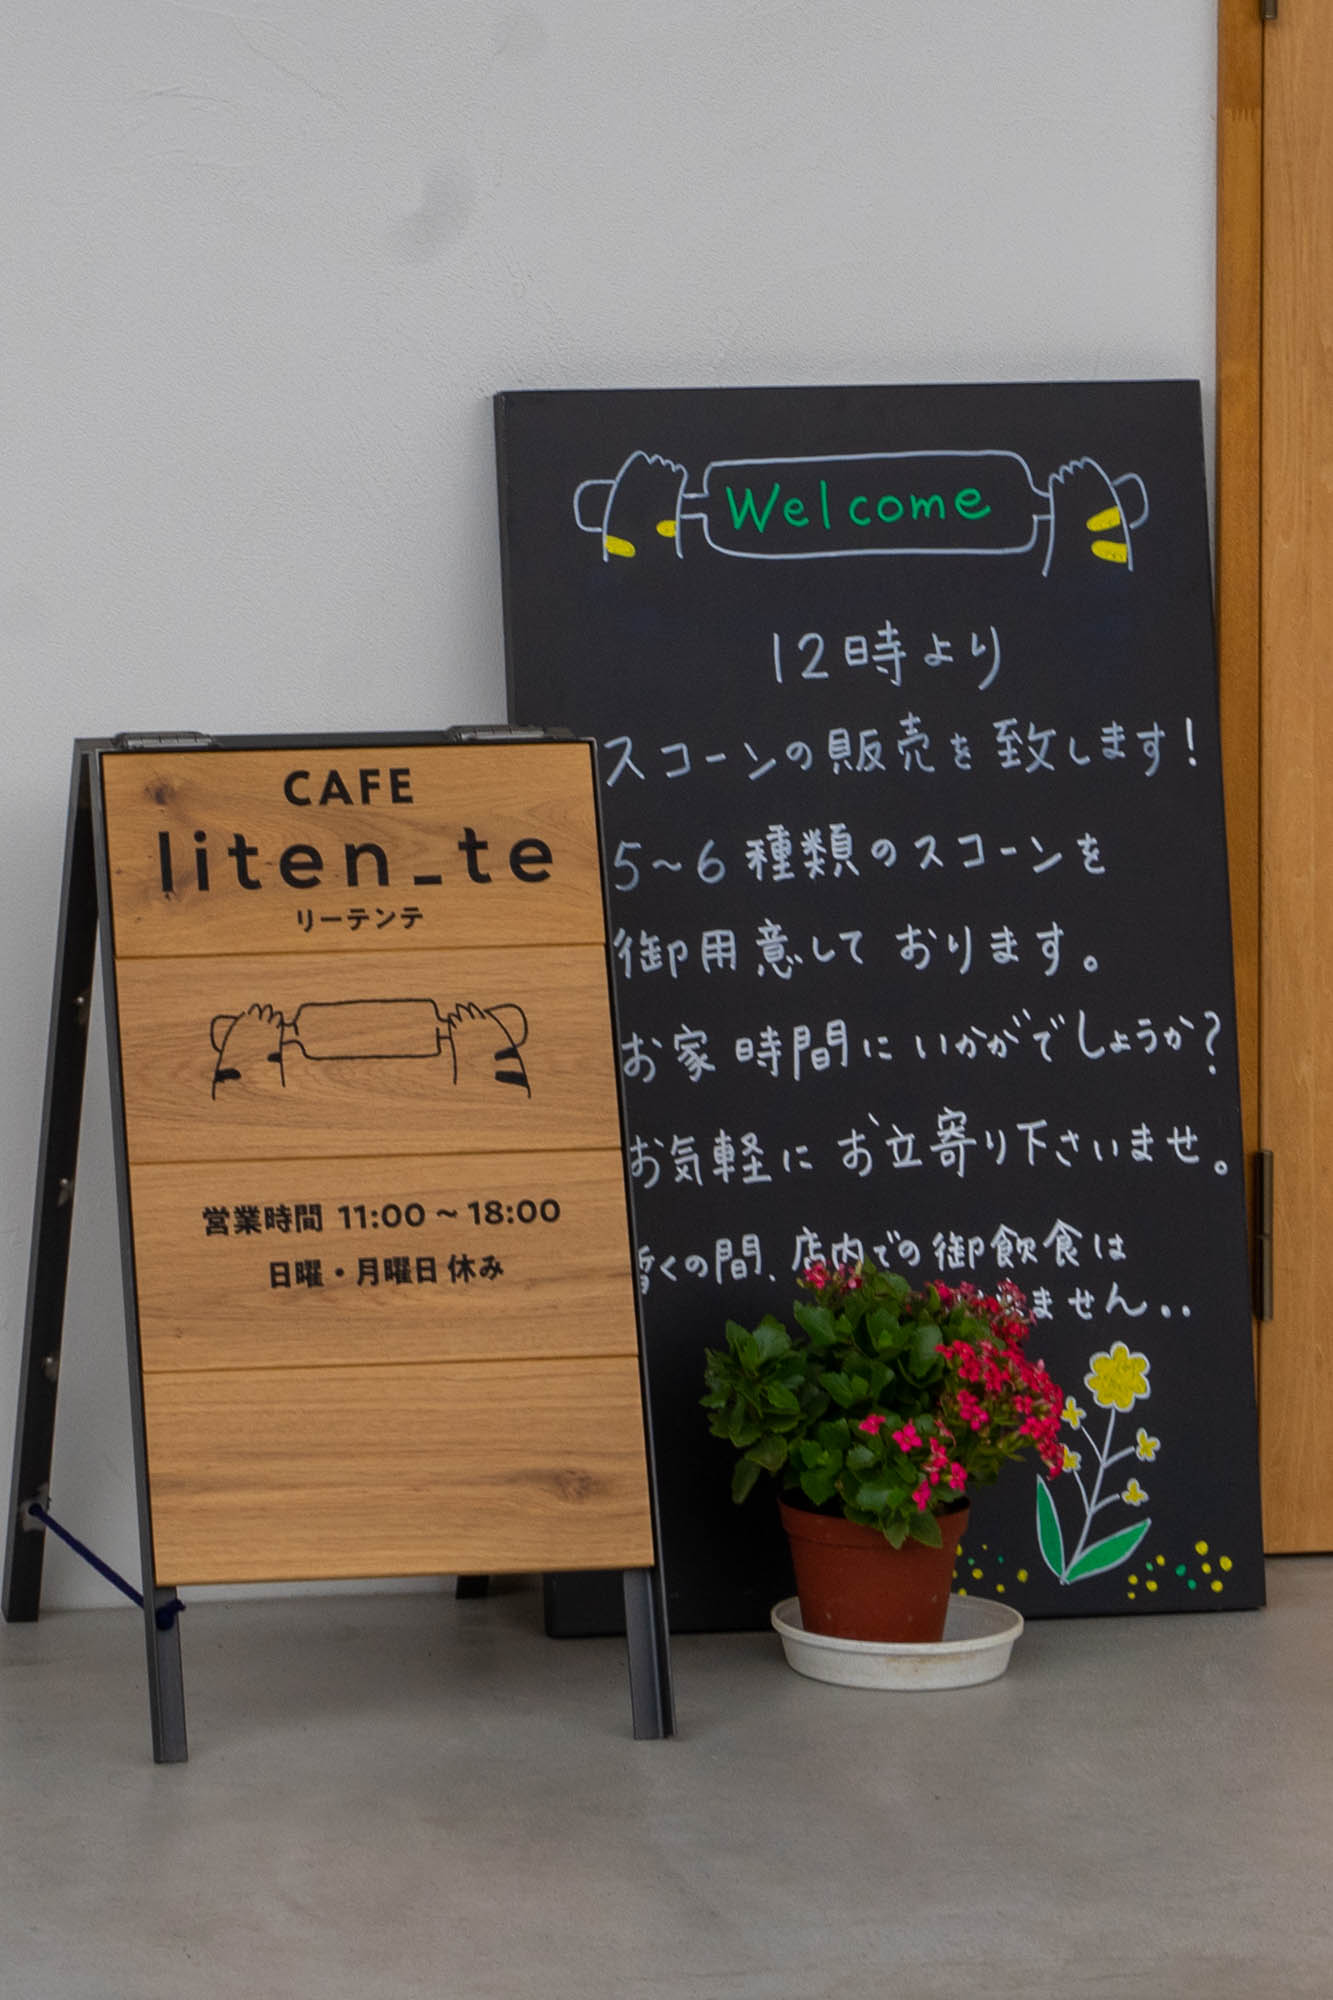 CAFE
liten_te
リーテンテ
営業時間 11:00 ~ 18:00
日曜・月曜日 休み
Welcome
12時より
スコーンの販売を致します!
5~6種類のスコーンを
御用意しております。
お家時間にいかがでしょうか?
お気軽にお立寄り下さいませ。
くの間、店内での御飲食は
ません..